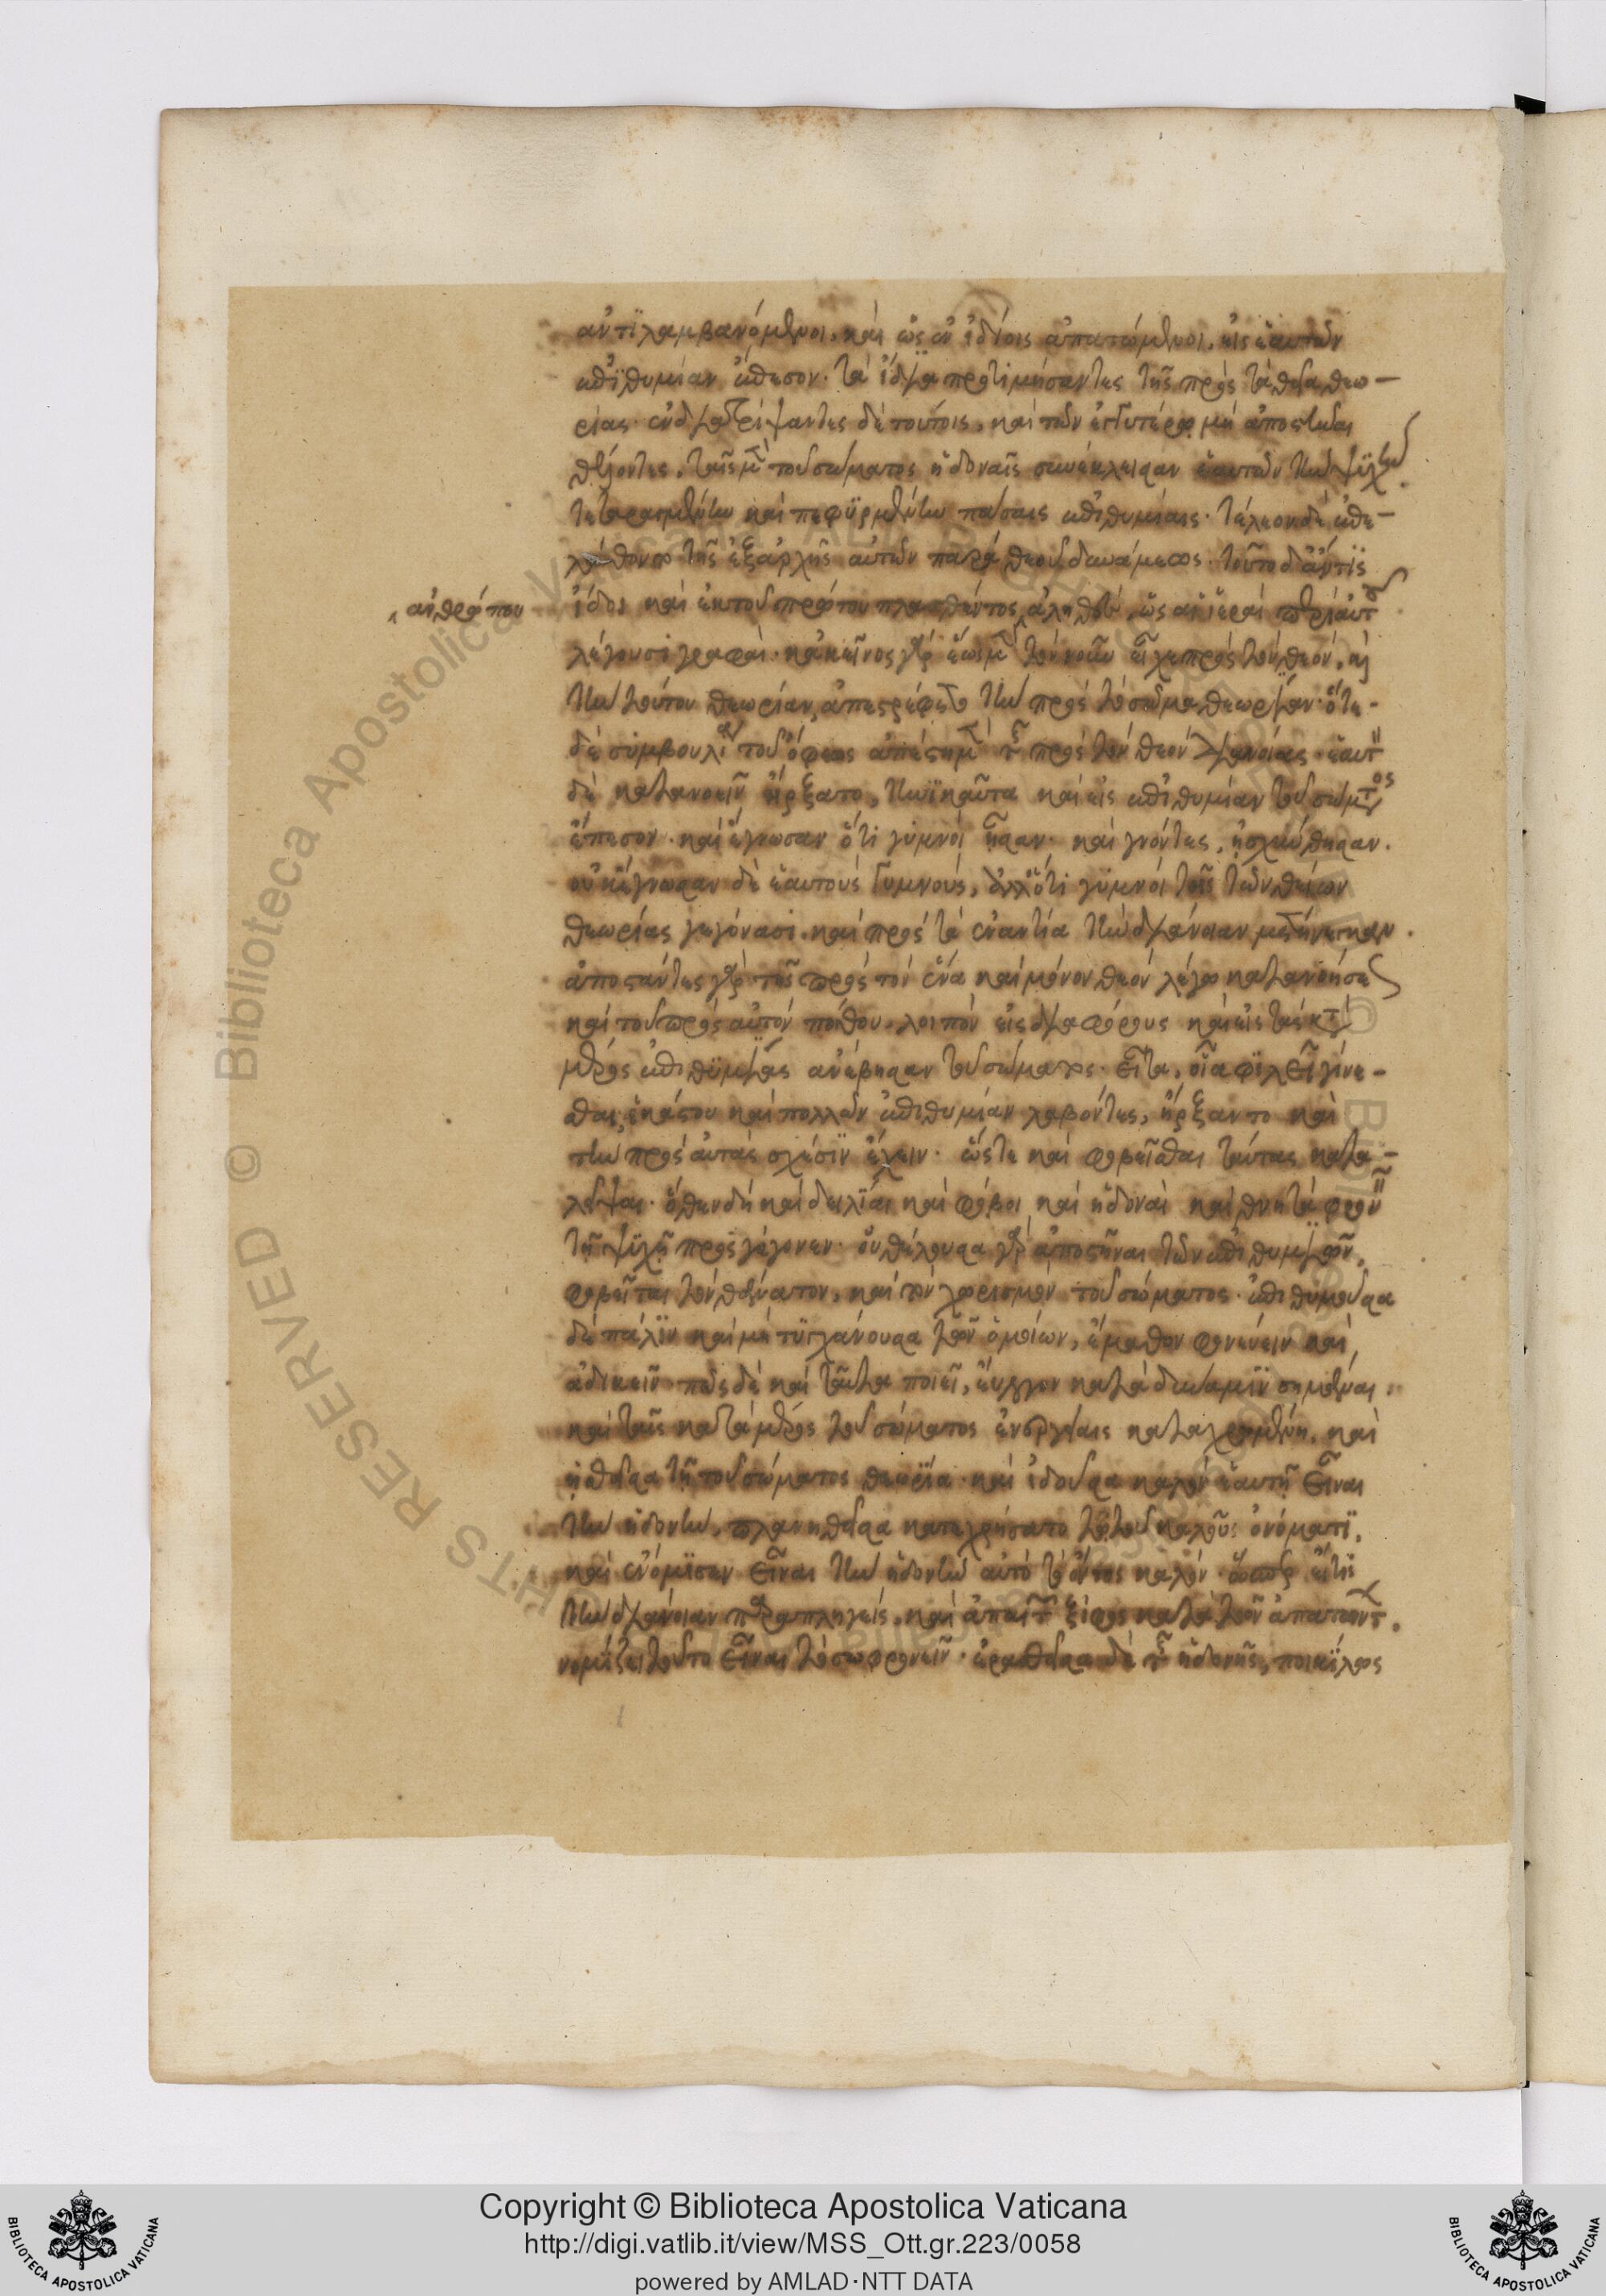 ἀντϊλαμβανόμενοι, καὶ ὡς ἐν ἰδίοις ἀπατώμενοι, εἰς ἑαυτῶν
ἐπϊθυμίαν ἔπεσον· τὰ ἴδια προτιμήσαντες τῆς πρὸς τὰ θεῖα θεω-
ρίας· ἐνδιατρίψαντες δὲ τούτοις, καὶ τῶν ἐγγυτέρω μὴ ἀποστῆναι
θέλοντες, ταῖς μὲν τοῦ σώματος ἡδοναῖς συνέκλεισαν ἑαυτῶν τὴν ψϋχὴν
τεταραγμένην καὶ πεφϋρμένην πάσαις ἐπιθυμίαις· τέλεον δὲ ἐπε-
λάθοντο τῆς ἐξ ἀρχῆς αὐτῶν παρὰ θεοῦ δυνάμεως· τοῦτο δ' ἄν τϊς
ἴδοι καὶ ἐκ τοῦ πρώτου πλασθέντος ἀληθὲς, ὡς αἱ ἱεραὶ περὶ αὐτοῦ
^ ἀνθρώπου
λέγουσι γραφαί· κἀκεῖνος γὰρ ἕως μὲν τὸν νοῦν εἶχε πρὸς τὸν θεόν, καὶ
τὴν τούτου θεωρίαν, ἀπεστρέφετο τὴν πρὸς τὸ σῶμα θεωρίαν· ὅτε-
δὲ συμβουλίᾳ τοῦ ὄφεως ἀπέστη μὲν τῆς πρὸς τὸν θεὸν διανοίας· ἑαυτὸν
δὲ κατανοεῖν ἤρξατο, τηνϊκαῦτα καὶ εἰς ἐπιθυμίαν τοῦ σώματος
ἔπεσον· καὶ ἔγνωσαν ὅτι γυμνοὶ ἦσαν· καὶ γνόντες, ᾐσχύνθησαν.
οὐκ ἔγνωσαν δὲ ἑαυτοὺς γυμνοὺς, ἀλλ' ὅτι γυμνοὶ τῆς τῶν θείων
θεωρίας γεγόνασι, καὶ πρὸς τὰ ἐναντία τὴν διάνοιαν μετήνεγκαν.
ἀποστάντες γὰρ τῆς πρὸς τὸν ἕνα καὶ μόνον θεὸν λέγω κατανοήσεως
καὶ τοῦ πρὸς αὐτὸν πόθου, λοιπὸν εἰς διαφόρους καὶ εἰς τὰς κατὰ
μέρος ἐπιθϋμίας ἀνέβησαν τοῦ σώματος· εἶτα, οἷα φϊλεῖ γίνε-
σθαι, ἑκάστου καὶ πολλῶν ἐπιθυμίαν λαβόντες, ἤρξαντο καὶ
τὴν πρὸς αὐτὰς σχέσϊν ἔχειν· ὥστε καὶ φοβεῖσθαι ταύτας κατα-
λεῖψαι· ὅθεν δὴ καὶ δειλίαι καὶ φόβοι καὶ ἡδοναὶ καὶ θνητὰ φρονεῖν
τῇ ψϋχῇ προσγέγονεν· οὐ θέλουσα γὰρ ἀποστῆναι τῶν ἐπιθυμιῶν,
φοβεῖται τὸν θάνατον, καὶ τὸν χωρισμὸν τοῦ σώματος· ἐπιθυμοῦσα
δὲ πάλϊν καὶ μὴ τϋγχάνουσα τῶν ὁμοίων, ἔμαθον φονεύειν καὶ
ἀδικεῖν· πῶς δὲ καὶ ταῦτα ποιεῖ, εὔλογον κατὰ δύναμϊν σημᾶναι.
καὶ ταῖς κατὰ μέρος τοῦ σώματος ἐνεργείαις καταχρωμένη, καὶ
ἡσθεῖσα τῇ τοῦ σώματος θεωρίᾳ· καὶ ἰδοῦσα καλὸν ἑαυτῇ εἶναι
τὴν ἡδονὴν, πλανηθεῖσα κατεχρήσατο τῷ τοῦ καλοῦ ὀνόματϊ,
καὶ ἐνόμϊσεν εἶναι τὴν ἡδονὴν αὐτὸ τὸ ὄντως καλὸν· ὥσπερ εἴ τϊς
τὴν διάνοιαν παραπληγείς, καὶ ἀπαιτῶν ξίφος κατὰ τῶν ἀπαντώντων.
νομίζει τοῦτο εἶναι τὸ σωφρονεῖν· ἐρασθεῖσα δὲ τῆς ἡδονῆς, ποικίλως
Copyright © Biblioteca Apostolica Vaticana
http://digi.vatlib.it/view/MSS_Ott.gr.223/0058
powered by AMLAD·NTT DATA